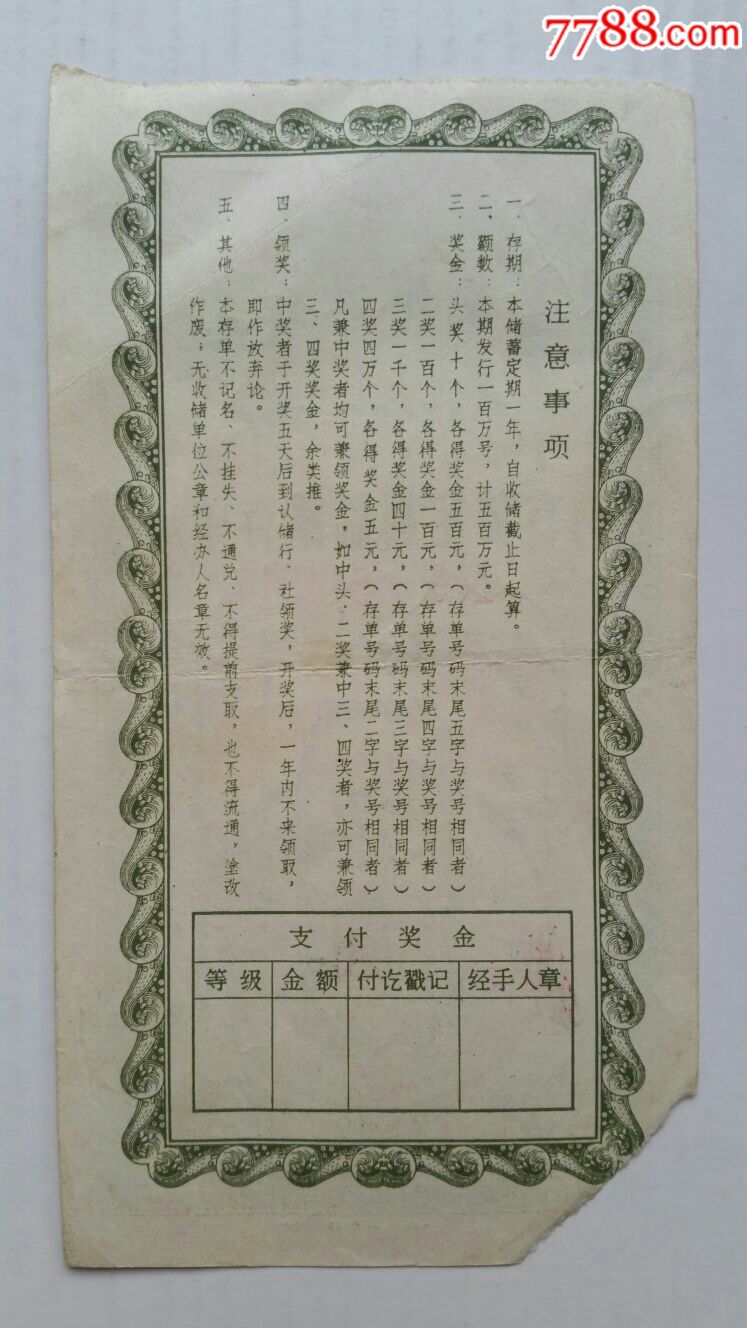 7788.com
注意事项
一、存期：本储蓄定期一年，自收储截止日起算。
二、额数：本期发行一百万号，计五百万元。
三、奖金：头奖十个，各得奖金五百元，（存单号码末尾五字与奖号相同者）
二奖一百个，各得奖金一百元，（存单号码末尾四字与奖号相同者）
三奖一千个，各得奖金四十元，（存单号码末尾三字与奖号相同者）
四奖四万个，各得奖金五元，（存单号码末尾二字与奖号相同者）
凡兼中奖者均可兼领奖金，如中头、二奖兼中三、四奖者，亦可兼领
三、四奖奖金，余类推。
四、领奖：中奖者于开奖五天后到认储行、社领奖，开奖后，一年内不来领取，
即作放弃论。
五、其他：本存单不记名、不挂失、不通兑、不得提前支取，也不得流通，塗改
作废；无收储单位公章和经办人名章无效。
支付奖金
等级 金额 付讫戳记 经手人章